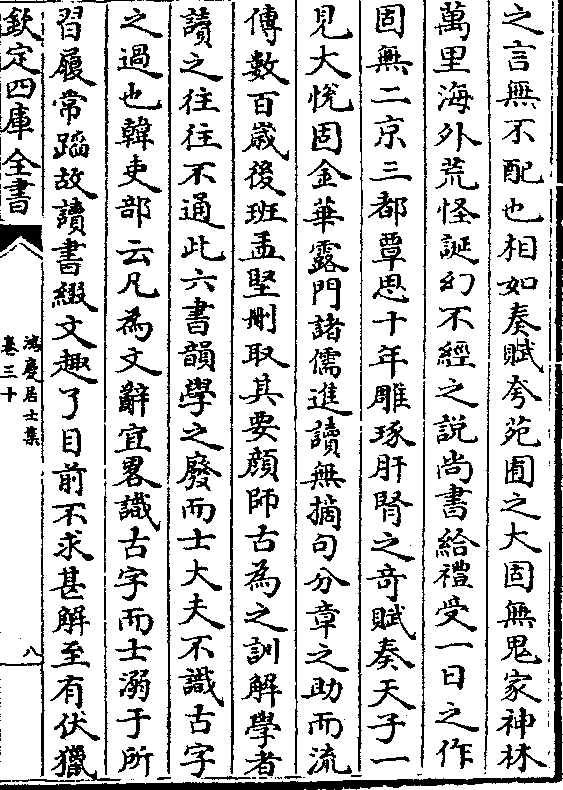 之言無不配也相如奏賦夸苑囿之大固無鬼家神林
萬里海外荒怪誕幻不經之説尚書給禮受一日之作
固無二京三都覃思十年雕琢肝腎之竒賦奏天子一
見大悦固金華露門諸儒進讀無摘句分章之助而流
傳數百歳後班孟堅刪取其要顔師古為之訓解學者
讀之往往不通此六書韻學之廢而士大夫不識古字
之過也韓吏部云凡為文辭宜畧識古字而士溺于所
習履常蹈故讀書綴文趣了目前不求甚解至有伏獵
欽定四庫全書
鴻慶居士集
卷三十
八